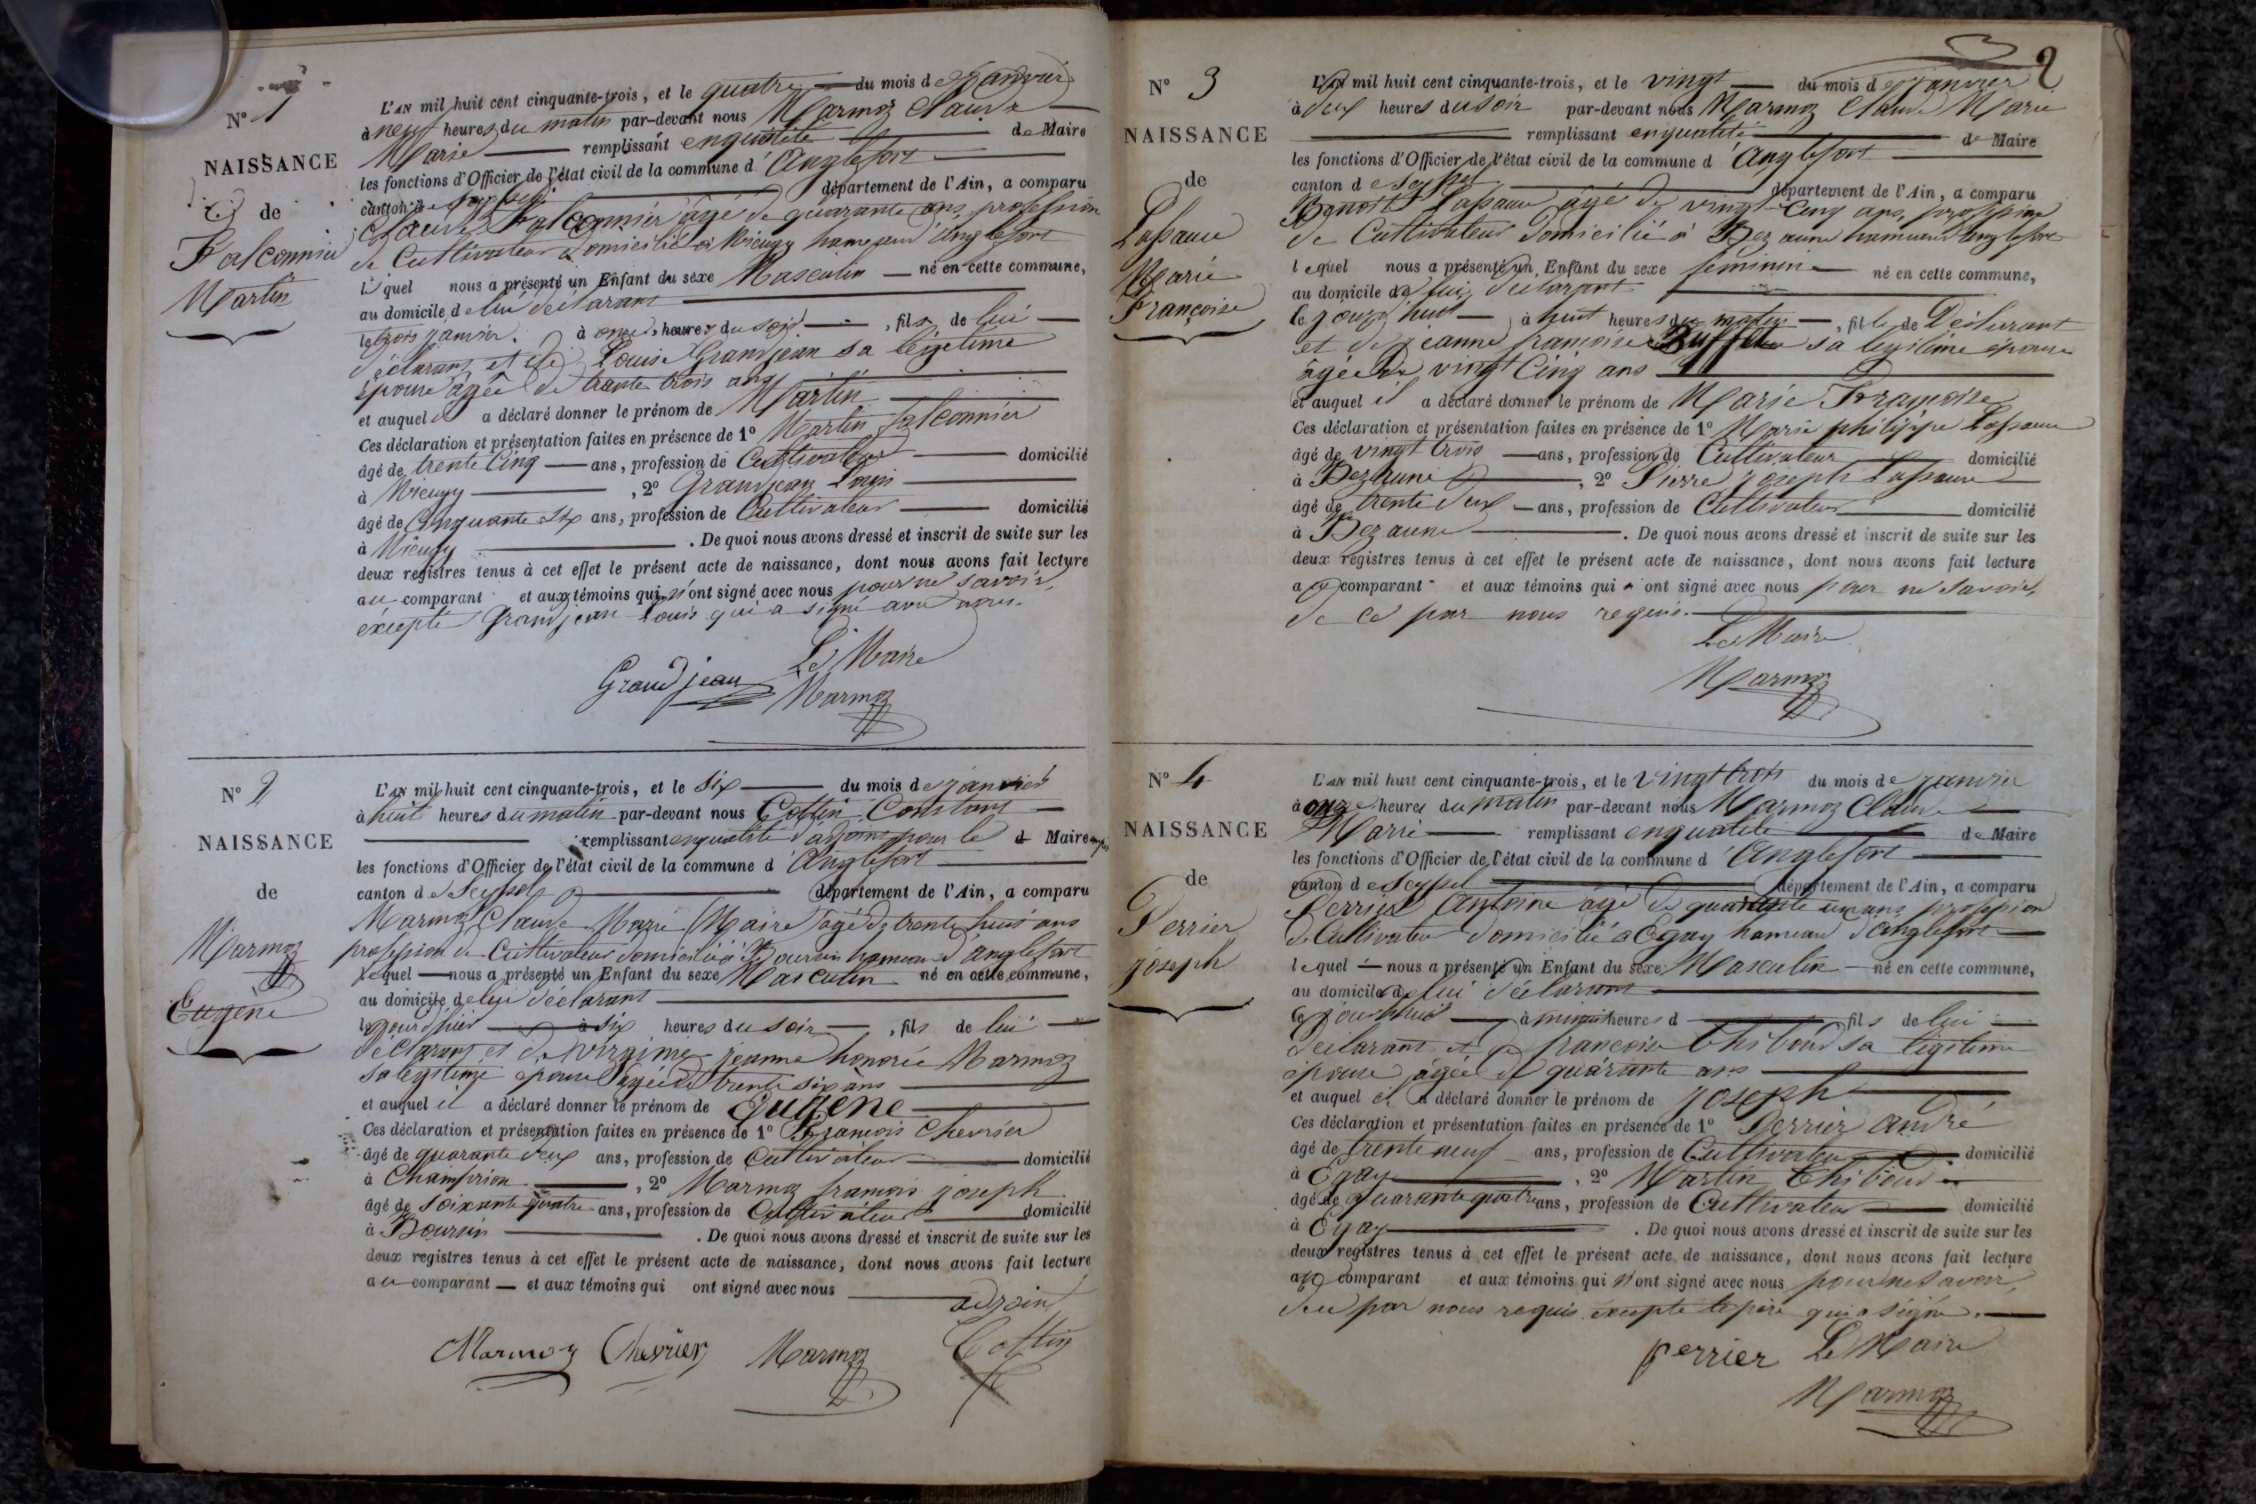 N° 1
NAISSANCE
de
Falconnier
Martin
L'AN mil huit cent cinquante-trois, et le quatre du mois de janvier
à neuf heures du matin par-devant nous Marmoz Claude
Marie remplissant en qualité de Maire
les fonctions d'Officier de l'état civil de la commune d'Anglefort
canton de Seyssel département de l'Ain, a comparu
Claude Falconnier âgé de quarante ans, profession
de Cultivateur domicilié à hameau d'anglefort
lequel nous a présenté un Enfant du sexe Masculin né en cette commune,
au domicile de lui déclarant
le trois janvier à onze heures du soir, fils de lui
déclarant et de Louise Grandjean sa légitime
épouse âgée de trente trois ans
et auquel il a déclaré donner le prénom de Martin
Ces déclaration et présentation faites en présence de 1° Martin falconnier
âgé de trente Cinq ans, profession de Cultivateur domicilié
à , 2° Grandjean Louis
âgé de Cinquante six ans, profession de Cultivateur domicilié
à . De quoi nous avons dressé et inscrit de suite sur les
deux registres tenus à cet effet le présent acte de naissance, dont nous avons fait lecture
au comparant et aux témoins qui n'ont signé avec nous pour ne savoir,
excepté Grandjean Louis qui a signé avec nous.
Le Maire
Grandjean Marmoz
N° 2
NAISSANCE
de
Marmoz
Eugène
L'AN mil huit cent cinquante-trois, et le six du mois de janvier
à huit heures du matin par-devant nous Cottin Constant
remplissant en qualité d'adjoint pour le Maire
les fonctions d'Officier de l'état civil de la commune d'Anglefort
canton de Seyssel département de l'Ain, a comparu
Marmoz Claude Marie (Maire) âgé de trente huit ans
profession de Cultivateur domicilié à Boursin hameau d'anglefort
lequel nous a présenté un Enfant du sexe Masculin né en cette commune,
au domicile de lui déclarant
le jour d'hier à six heures du soir, fils de lui
déclarant et de Virginie jeanne honorée Marmoz
sa légitime épouse âgée de trente six ans
et auquel il a déclaré donner le prénom de Eugène
Ces déclaration et présentation faites en présence de 1° François Chevrier
âgé de quarante deux ans, profession de Cultivateur domicilié
à Champrion, 2° Marmoz françois joseph
âgé de soixante quatre ans, profession de Cultivateur domicilié
à Boursin . De quoi nous avons dressé et inscrit de suite sur les
deux registres tenus à cet effet le présent acte de naissance, dont nous avons fait lecture
au comparant et aux témoins qui ont signé avec nous
adjoint
Marmoz Chevrier Marmoz Cottin
2
N° 3
NAISSANCE
de
Lassaue
Marie
Françoise
L'AN mil huit cent cinquante-trois, et le vingt du mois de janvier
à deux heures du soir par-devant nous Marmoz Claude Marie
remplissant en qualité de Maire
les fonctions d'Officier de l'état civil de la commune d'Anglefort
canton de Seyssel département de l'Ain, a comparu
Benoit Lassaue âgé de vingt-Cinq ans, profession
de Cultivateur domicilié à Bezaune hameau d'anglefort
lequel nous a présenté un Enfant du sexe féminin né en cette commune,
au domicile de lui déclarant
le jour d'hui à huit heures du matin, fille de Déclarant
et de jeanne françoise sa légitime épouse
âgée de vingt Cinq ans
et auquel il a déclaré donner le prénom de Marie Françoise
Ces déclaration et présentation faites en présence de 1° Marie philippe Lassaue
âgé de vingt trois ans, profession de Cultivateur domicilié
à Bezaune, 2° Pierre joseph Lassaue
âgé de trente deux ans, profession de Cultivateur domicilié
à Bezaune . De quoi nous avons dressé et inscrit de suite sur les
deux registres tenus à cet effet le présent acte de naissance, dont nous avons fait lecture
au comparant et aux témoins qui n'ont signé avec nous pour ne savoir,
de ce par nous requis.
Le Maire
Marmoz
N° 4
NAISSANCE
de
Perrier
joseph
L'AN mil huit cent cinquante-trois, et le vingt trois du mois de janvier
à onze heures du matin par-devant nous Marmoz Claude
Marie remplissant en qualité de Maire
les fonctions d'Officier de l'état civil de la commune d'Anglefort
canton de Seyssel département de l'Ain, a comparu
Perrier Antoine âgé de quarante un ans, profession
de Cultivateur domicilié à Egay hameau d'anglefort
lequel nous a présenté un Enfant du sexe Masculin né en cette commune,
au domicile de lui déclarant
le jourd'hui à minuit heures d fils de lui
déclarant et de françoise Thiboud sa légitime
épouse âgée de quarante ans
et auquel il a déclaré donner le prénom de joseph
Ces déclaration et présentation faites en présence de 1° Perrier andré
âgé de trente neuf ans, profession de Cultivateur domicilié
à Egay, 2° Martin Thiboud
âgé de quarante quatre ans, profession de Cultivateur domicilié
à Egay . De quoi nous avons dressé et inscrit de suite sur les
deux registres tenus à cet effet le présent acte de naissance, dont nous avons fait lecture
au comparant et aux témoins qui n'ont signé avec nous pour ne savoir,
de ce par nous requis excepté le père qui a signé.
perrier Le Maire
Marmoz